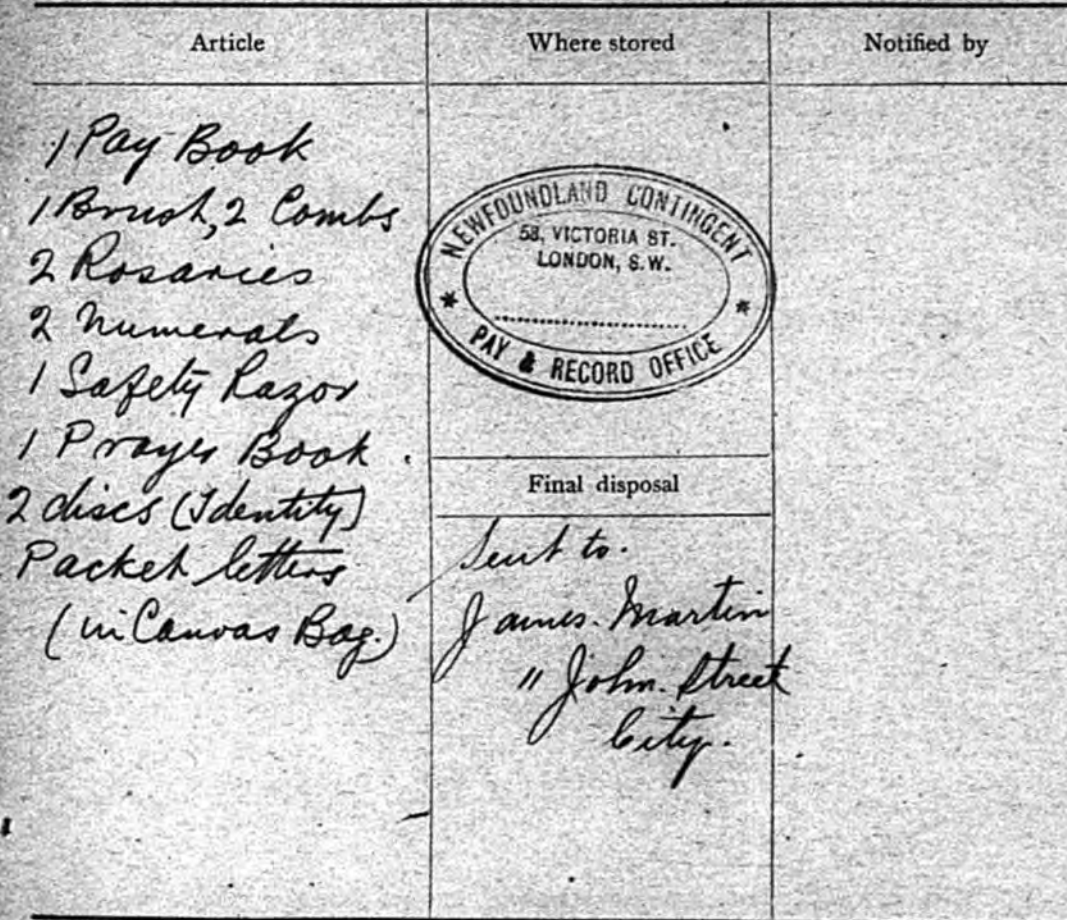 Article
Where stored
Notified by
1 Pay Book
1 Brush, 2 Combs
2 Rosaries
2 Numerals
1 Safety Razor
1 Prayer Book.
2 discs (Identity)
Packet letters
(in Canvas Bag.)
NEWFOUNDLAND CONTINGENT
58, VICTORIA ST.
LONDON, S.W.
* PAY & RECORD OFFICE *
Final disposal
Sent to.
James. Martin
11 John. Street
City.